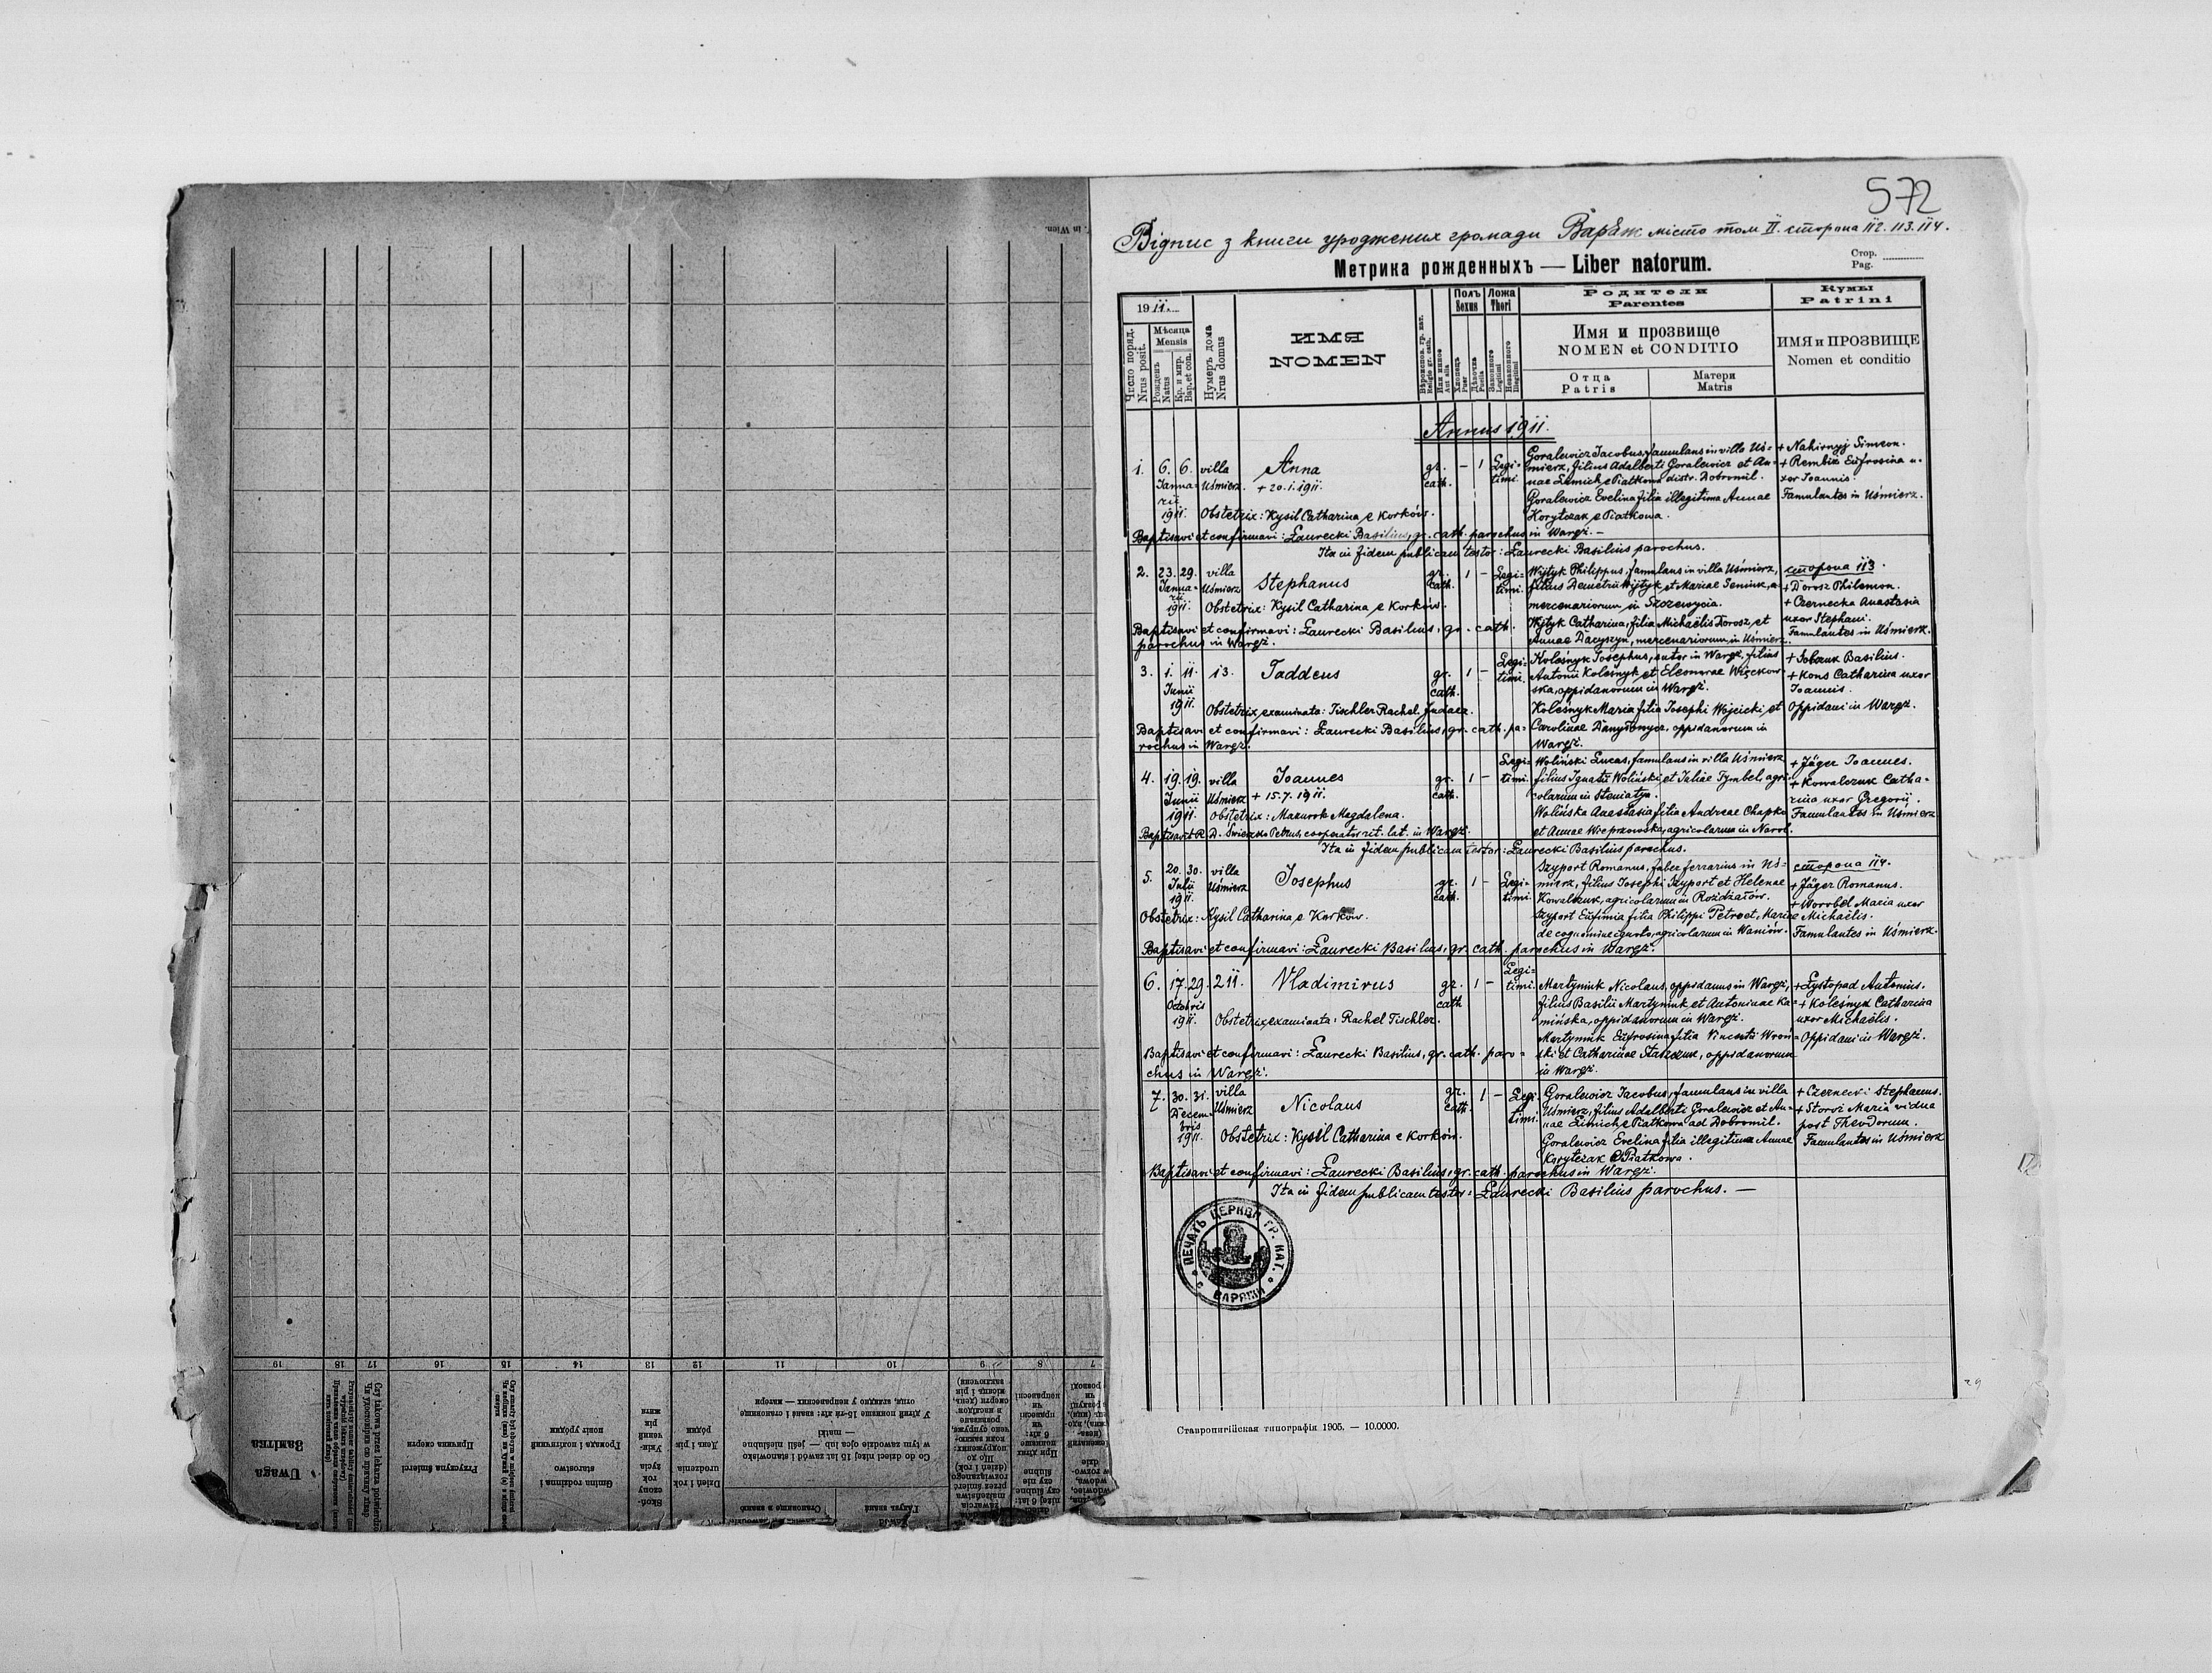 572
Відпис з книги уроджених громади Варяж місто том II. сторона 112. 113. 114.
Метрика рожденныхъ — Liber natorum.
Стор.
Pag.
1911.
Число поряд.
Nrus posit.
Мѣсяца
Mensis
Рожденъ
Natus
Кр. и мир.
Bap. et con.
Нумеръ дома
Nrus domus
ИМЯ
NOMEN
Полъ
Sexus
Ложа
Thori
Родители
Parentes
Имя и прозвище
NOMEN et CONDITIO
Отца
Patris
Матери
Matris
Кумы
Patrini
ИМЯ и ПРОЗВИЩЕ
Nomen et conditio
Annus 1911.
1. 6. 6. villa Anna gr. – 1 Legi-
Janua- Uśmierz. + 20.1.1911. cath. timi.
rii
1911. Obstetrix: Kysil Catharina e Korków.
Goralewicz Jacobus, famulans in villa Uś-
mierz, filius Adalberti Goralewicz et An-
nae Zimich e Piatkowa distr. Dobromil.
Goralewicz Evelina filia illegitima Annae
Korytczak e Piatkowa.
+ Nahirnyj Simeon.
+ Rembisz Eufrosina u-
xor Joannis.
Famulantes in Uśmierz.
Baptisavi et confirmavi: Ławrecki Basilius, gr. cath. parochus in Waręż. –
Ita in fidem publicam testor: Ławrecki Basilius parochus.
2. 23. 29. villa Stephanus gr. 1 – Legi-
Janua- Uśmierz cath. timi.
rii
1911. Obstetrix: Kysil Catharina e Korków.
Wijtyk Philippus, famulans in villa Uśmierz,
filius Demetrii Wijtyk et Mariae Seniuk,
mercenariorum in Szczewycia.
Wijtyk Catharina, filia Michaëlis Dorosz, et
Annae Dacyszyn, mercenariorum in Uśmierz.
сторона 113.
+ Dorosz Philemon.
+ Czernecka Anastasia
uxor Stephani.
Famulantes in Uśmierz.
Baptisavi et confirmavi: Ławrecki Basilius, gr. cath.
parochus in Waręż.
3. 1. 11. 13. Taddeus gr. 1 – Legi-
Junii cath. timi.
1911. Obstetrix examinata: Tischler Rachel, Judaea.
Koleśnyk Josephus, sutor in Waręż, filius
Antonii Koleśnyk et Eleonorae Więckow-
ska, oppidanorum in Waręż.
Koleśnyk Maria filia Josephi Wojcicki, et
Carolinae Danyłowycz, oppidanorum in
Waręż.
+ Sobczuk Basilius.
+ Kons Catharina uxor
Joannis.
Oppidani in Waręż.
Baptisavi et confirmavi: Ławrecki Basilius, gr. cath. pa-
rochus in Waręż.
4. 19. 19. villa Joannes gr. 1 – Legi-
Junii Uśmierz + 15.7.1911. cath. timi.
1911. Obstetrix: Mazurok Magdalena.
Woliński Lucas, famulans in villa Uśmierz
filius Ignatii Woliński et Juliae Tymbel, agri-
colarum in Steniatyn.
Wolińska Anastasia filia Andreae Chapko
et Annae Wieprzowska, agricolarum in Narol.
+ Jäger Joannes.
+ Kowalczuk Catha-
rina uxor Gregorij.
Famulantes in Uśmierz
Baptisavit R. D. Petrus, cooperator rit. lat. in Waręż.
Ita in fidem publicam testor: Ławrecki Basilius parochus.
5. 20. 30. villa Josephus gr. 1 – Legi-
Julii Uśmierz cath. timi.
1911.
Obstetrix: Kysil Catharina e Korków.
Szyport Romanus, faber ferrarius in Uś-
mierz, filius Josephi Szyport et Helenae
Kowalczuk, agricolarum in Rożdżałów.
Szyport Eufimia filia Philippi Petro et Mariae
de cognomine ignoto, agricolarum in Waniów.
сторона 114.
+ Jäger Romanus.
+ Worobel Maria uxor
Michaëlis.
Famulantes in Uśmierz.
Baptisavi et confirmavi: Ławrecki Basilius, gr. cath. parochus in Waręż.
6. 17. 29. 211. Vladimirus gr. 1 – Legi-
Octobris cath timi.
1911. Obstetrix examinata: Rachel Tischler.
Martyniuk Nicolaus, oppidanus in Waręż,
filius Basilii Martyniuk et Antoninae Ka-
mińska, oppidanorum in Waręż.
Martyniuk Eufrosina filia Vincentii Wroń-
ski et Catharinae Staszczuk, oppidanorum
in Waręż.
+ Łystopad Antonius.
+ Koleśnyk Catharina
uxor Michaëlis.
Oppidani in Waręż.
Baptisavi et confirmavi: Ławrecki Basilius, gr. cath. paro-
chus in Waręż.
7. 30. 31. villa Nicolaus gr. 1 – Legi-
Decem- Uśmierz cath. timi.
bris
1911. Obstetrix: Kysil Catharina e Korków.
Goralewicz Jacobus, famulans in villa
Uśmierz, filius Adalberti Goralewicz et An-
nae Zimich e Piatkowa ad Dobromil.
Goralewicz Evelina filia illegitima Annae
Korytczak e Piatkowa.
+ Czernecki Stephanus.
+ Storoż Maria vidua
post Theodorum.
Famulantes in Uśmierz
Baptisavi et confirmavi: Ławrecki Basilius, gr. cath. parochus in Waręż.
Ita in fidem publicam testor: Ławrecki Basilius parochus. —
ПЕЧАТЬ ЦЕРКВИ ГР. КАТ.
Ставропигійская типографія 1905. — 10.0000.
19 18 17 16 15 14 13 12 11 10 9 8 7
Uwaga
Замітка
Przyczyna śmierci
Причина смерти
Gmina rodzinna i
starostwo
Громада і політичний
повіт уродин
Skoń-
czony
rok
życia
Укін-
чений
рік
життя
Dzień i rok
urodzenia
День і рік
родин
Co do dzieci niżej 15 lat zawód i stanowisko
w tym zawodzie ojca lub — jeśli nieślubne
— matki